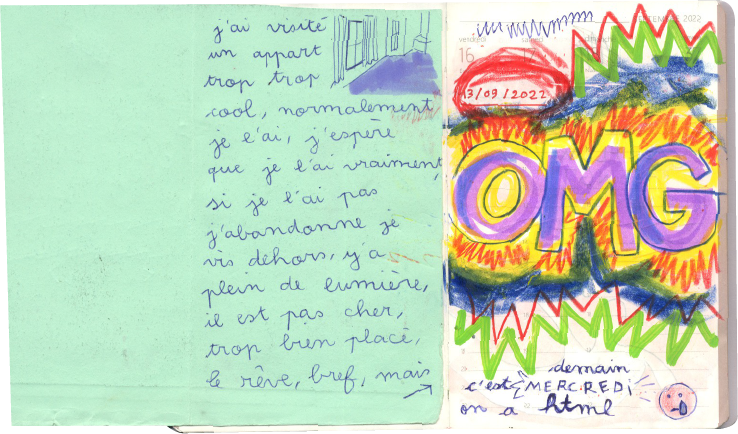 j'ai visité
un appart
trop trop
cool, normalement
je l'ai, j'espère
que je l'ai vraiment,
si je l'ai pas
j'abandonne je
vis dehors, y'a
plein de lumière,
il est pas cher,
trop bien placé,
le rêve, bref, mais
SEPTEMBRE 2022
vendredi
16
17
13/09/2022
OMG
demain
c'est MERCREDI
on a html